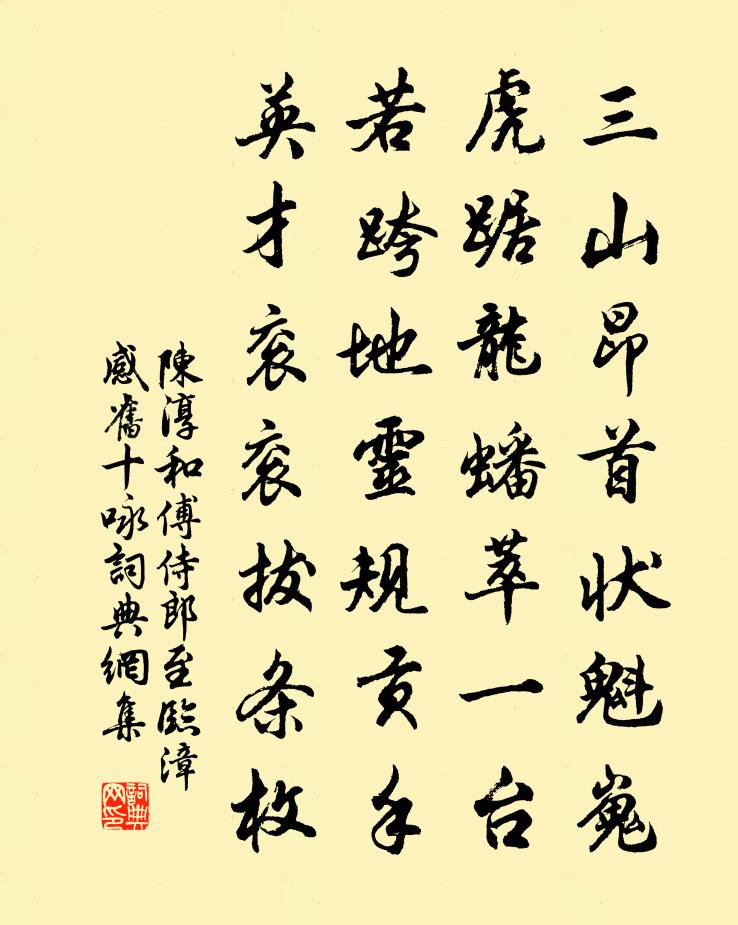 三山昂首状魁嵬
虎踞龍蟠萃一台
若跨地靈規貢手
英才衮衮拔条枚
陳淳和傅侍郎至臨漳
感舊十咏詞典網集
詞典
网印